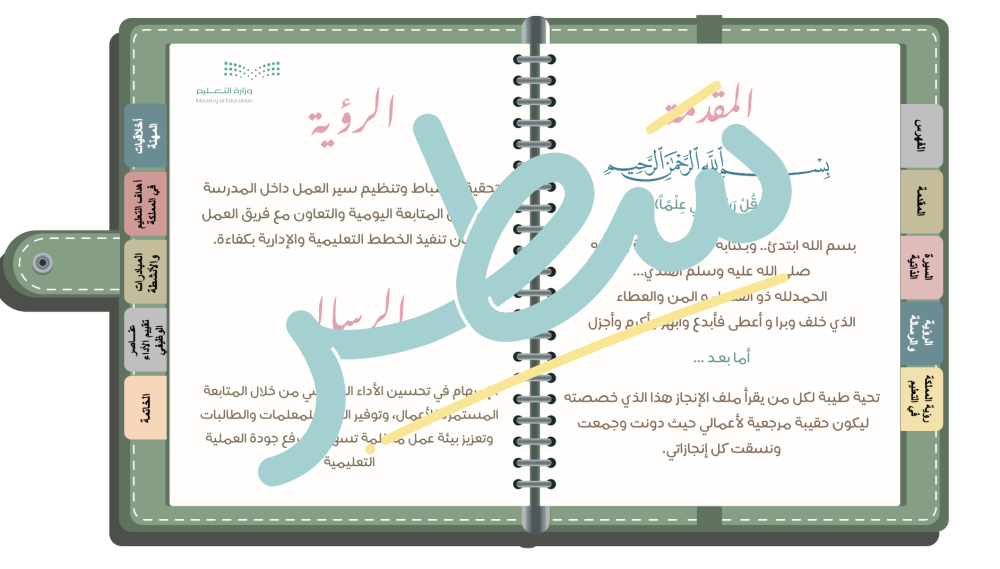 المقدمة
بِسْمِ اللَّهِ الرَّحْمَٰنِ الرَّحِيمِ
عِلْمًا
بسم الله ابتدئ.. وبكتابه
صلى الله عليه وسلم أهتدي...
الحمدلله ذو المن والعطاء
الذي خلف وبرا و أعطى فأبدع وأبهر وأكرم وأجزل
أما بعد ...
تحية طيبة لكل من يقرأ ملف الإنجاز هذا الذي خصصته
ليكون حقيبة مرجعية لأعمالي حيث دونت وجمعت
ونسقت كل إنجازاتي.
الفهرس
المقدمة
السيرة
الذاتية
الرؤية
والرسالة
رؤية المملكة
في التعليم
وزارة التعليم
Ministry of Education
الرؤية
وتنظيم سير العمل داخل المدرسة
المتابعة اليومية والتعاون مع فريق العمل
تنفيذ الخطط التعليمية والإدارية بكفاءة.
في تحسين الأداء من خلال المتابعة
وتوفير للمعلمات والطالبات
وتعزيز بيئة عمل جودة العملية
التعليمية
أخلاقيات
المهنة
أهداف التعليم
في المملكة
المبادرات
والأنشطة
عناصر
تقييم الأداء
الوظيفي
الخاتمة
سطر